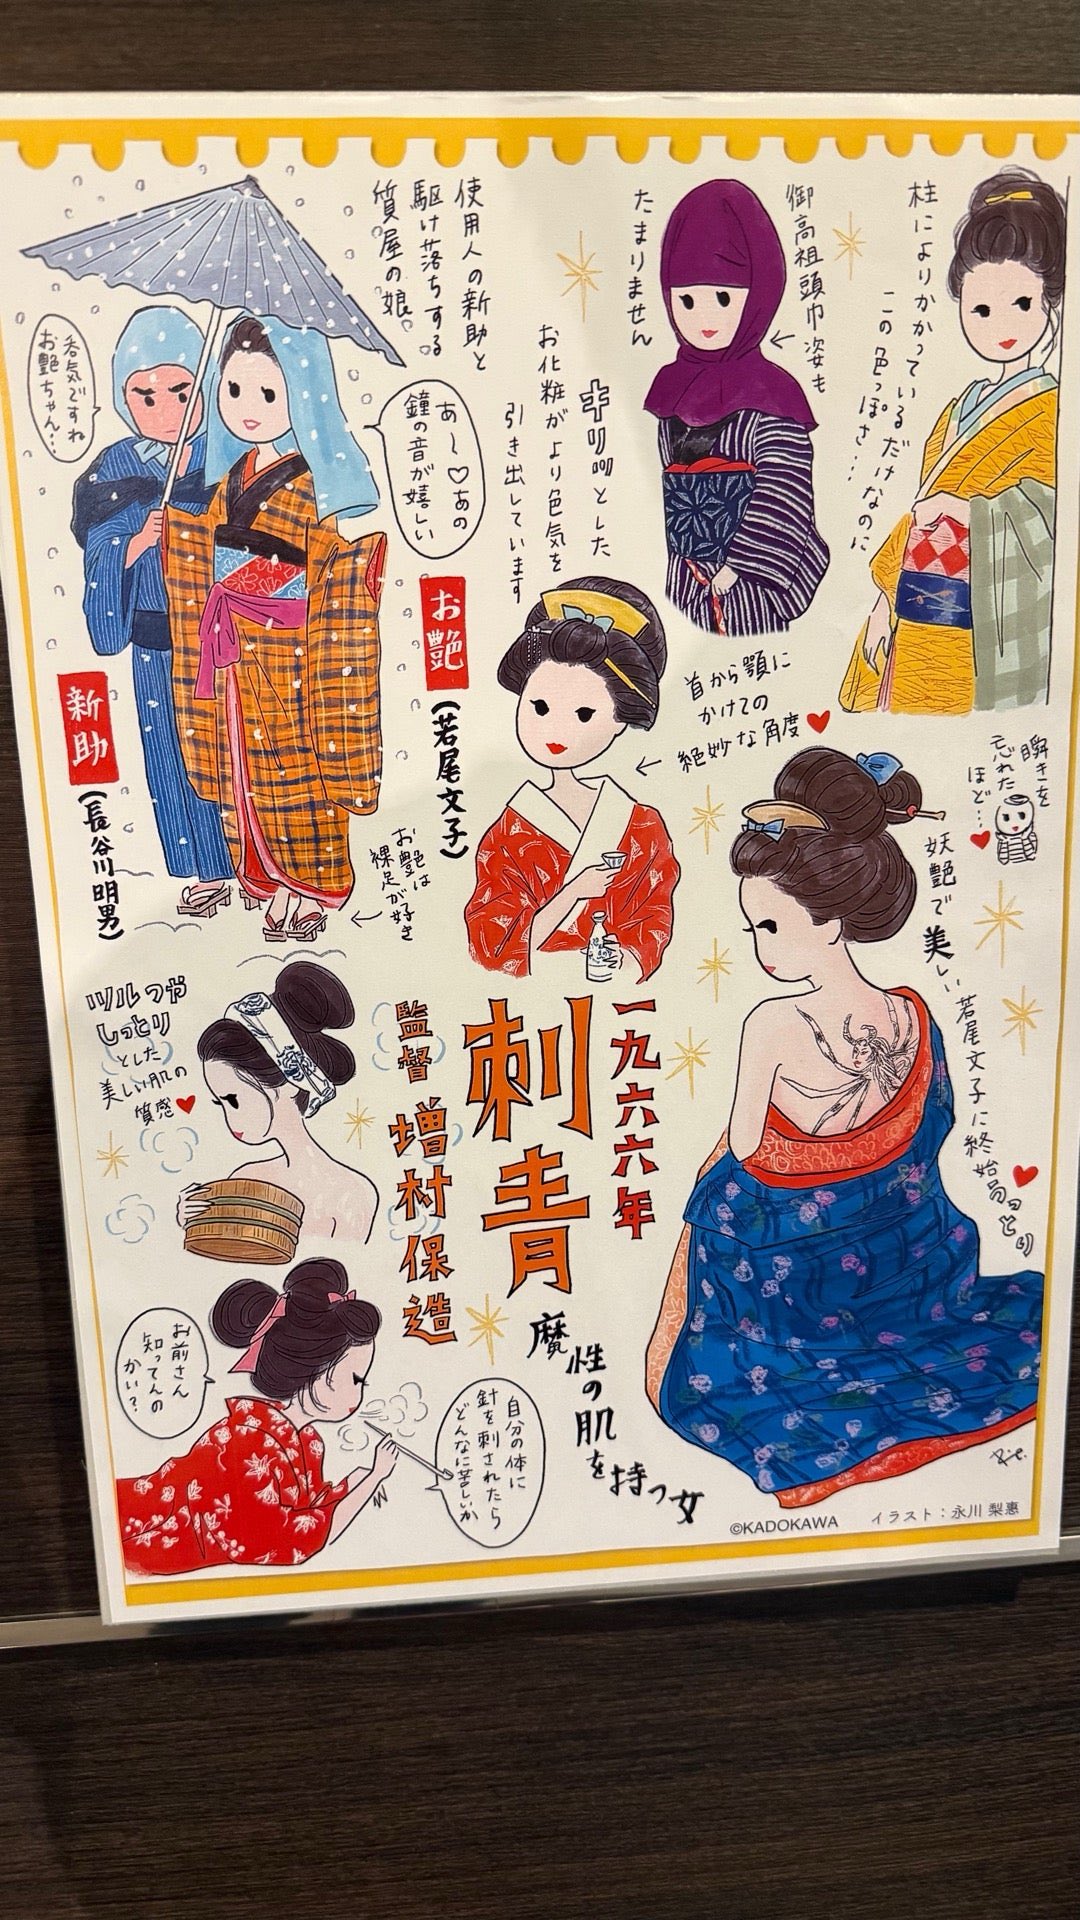 柱によりかかっているだけなのに
この色っぽさ…
御高祖頭巾姿も
たまりません
使用人の新助と
駆け落ちする
質屋の娘。
呑気ですね
お艶ちゃん…
あ〜♡あの
鐘の音が嬉しい
キリッとした
お化粧がより色気を
引き出しています
お艶
(若尾文子)
新助
(長谷川明男)
お艶は
裸足が好き
首から顎に
かけての
絶妙な角度♥
瞬きを
忘れた
ほど…♥
妖艶で美しい若尾文子に終始うっとり♥
ツルつや
しっとり
とした
美しい肌の
質感♥
一九六六年
刺青
監督 増村保造
魔性の肌を持つ女
お前さん
知ってんの
かい?
自分の体に
針を刺されたら
どんなに苦しいか
©KADOKAWA
イラスト:永川 梨惠